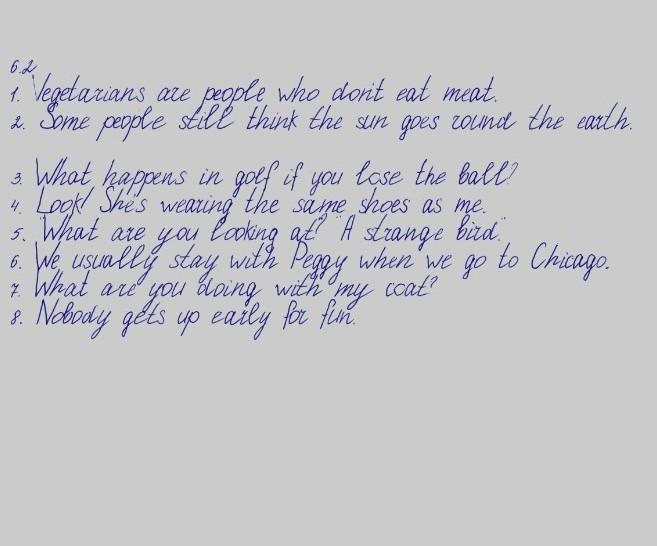 6.2
1. Vegetarians are people who don't eat meat.
2. Some people still think the sun goes round the earth.
3. What happens in golf if you lose the ball?
4. Look! She's wearing the same shoes as me.
5. "What are you looking at?" "A strange bird."
6. We usually stay with Peggy when we go to Chicago.
7. What are you doing with my coat?
8. Nobody gets up early for fun.